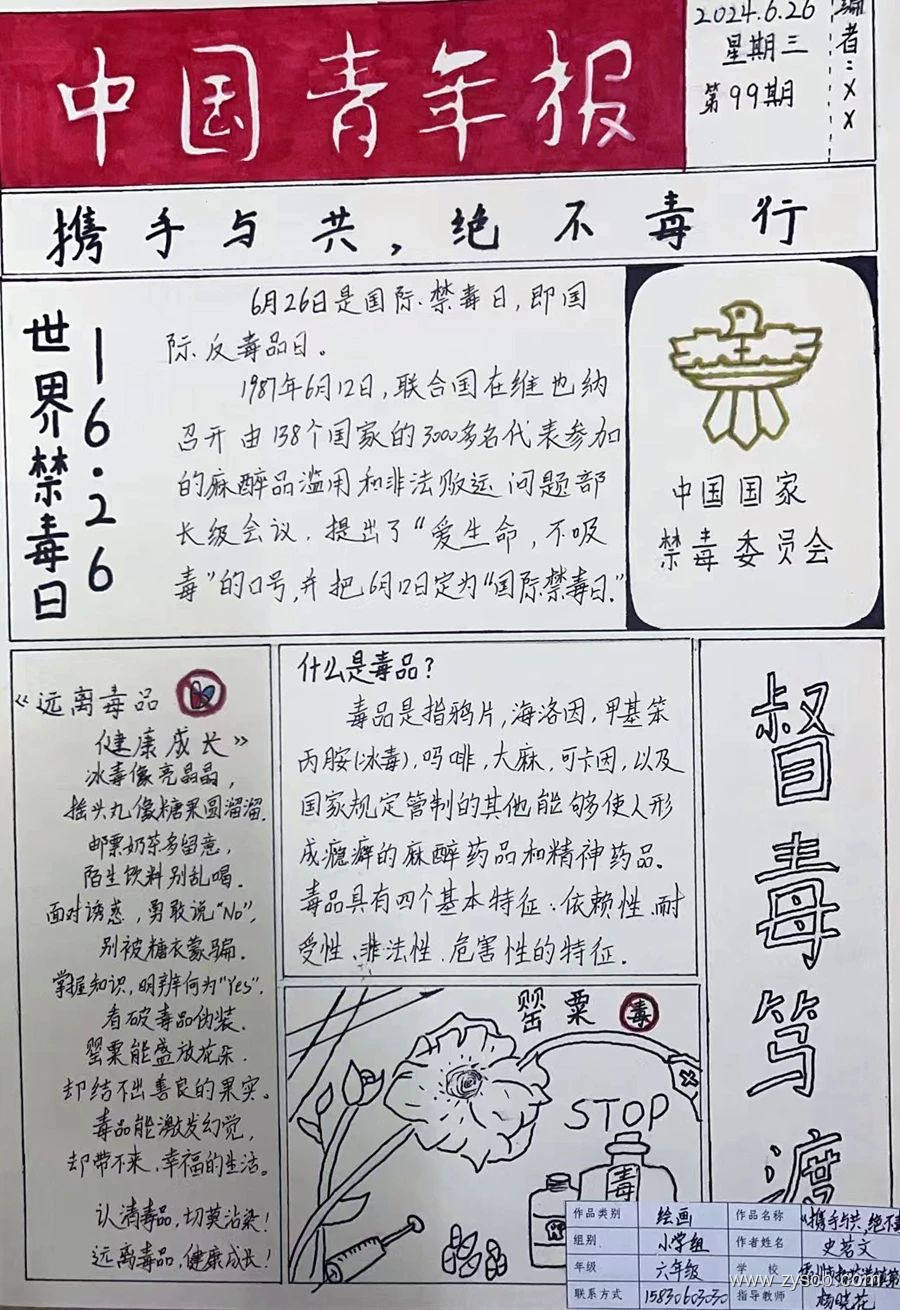 中国青年报
2024.6.26
星期三
第99期
编者:××
携手与共,绝不毒行
世界禁毒日
6.26
6月26日是国际禁毒日,即国
际反毒品日。
1987年6月12日,联合国在维也纳
召开由138个国家的3000多名代表参加
的麻醉品滥用和非法贩运问题部
长级会议,提出了“爱生命,不吸
毒”的口号,并把6月12日定为“国际禁毒日.”
中国国家
禁毒委员会
《远离毒品
健康成长》
冰毒像亮晶晶,
摇头丸像糖果圆溜溜.
邮票奶茶多留意,
陌生饮料别乱喝.
面对诱惑,勇敢说“No”,
别被糖衣蒙骗.
掌握知识,明辨何为“Yes”.
看破毒品伪装.
罂粟能盛放花朵.
却结不出善良的果实。
毒品能激发幻觉,
却带不来幸福的生活。
认清毒品,切莫沾染!
远离毒品,健康成长!
什么是毒品?
毒品是指鸦片,海洛因,甲基笨
丙胺(冰毒),吗啡,大麻,可卡因,以及
国家规定管制的其他能够使人形
成瘾癖的麻醉药品和精神药品。
毒品具有四个基本特征:依赖性、耐
受性、非法性、危害性的特征.
罂粟
毒
STOP
毒
督毒笃渡
作品类别 绘画 作品名称 《携手与共,绝不毒
组别 小学组 作者姓名 史茗文
年级 六年级 学校
联系方式 15830603030 指导教师 杨晓花
www.zyscb.com